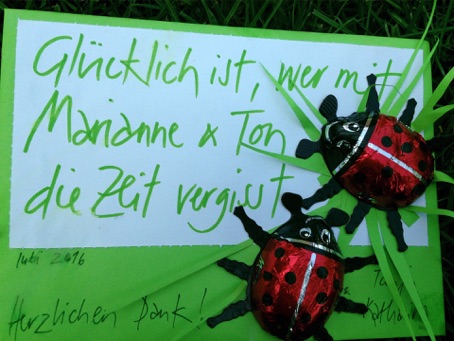 Glücklich ist, wer mit
Marianne & Ton
die Zeit vergisst
2016
Herzlichen Dank!